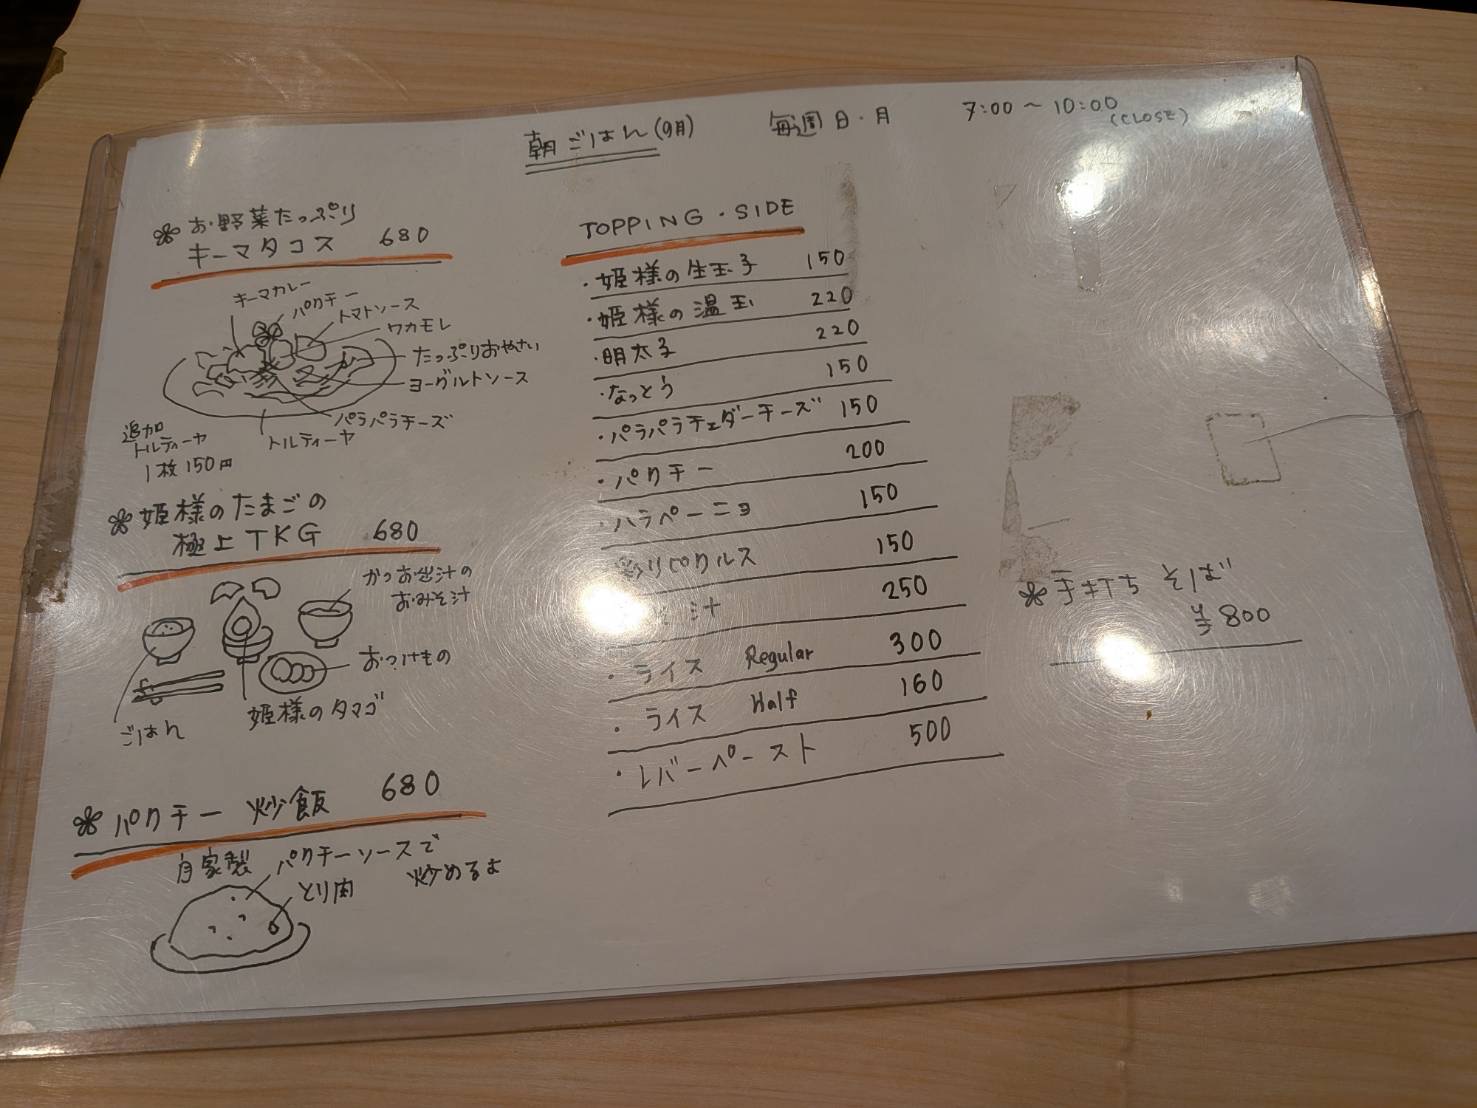 朝ごはん(9月)
毎週 日・月
7:00 〜 10:00
(CLOSE)
お野菜たっぷり
キーマタコス 680
キーマカレー
パクチー
トマトソース
ワカモレ
たっぷりおやさい
ヨーグルトソース
パラパラチーズ
トルティーヤ
追加
トルティーヤ
1枚 150円
姫様のたまごの
極上TKG 680
かつお出汁の
おみそ汁
おつけもの
姫様のタマゴ
ごはん
パクチー 炒飯 680
自家製 パクチーソースで
炒めるよ
とり肉
TOPPING・SIDE
・姫様の生玉子 150
・姫様の温玉 220
・明太子 220
・なっとう 150
・パラパラチェダーチーズ 150
・パクチー 200
・ハラペーニョ 150
リピクルス 150
汁 250
・ライス Regular 300
・ライス Half 160
・レバーペースト 500
手打ち そば
¥800